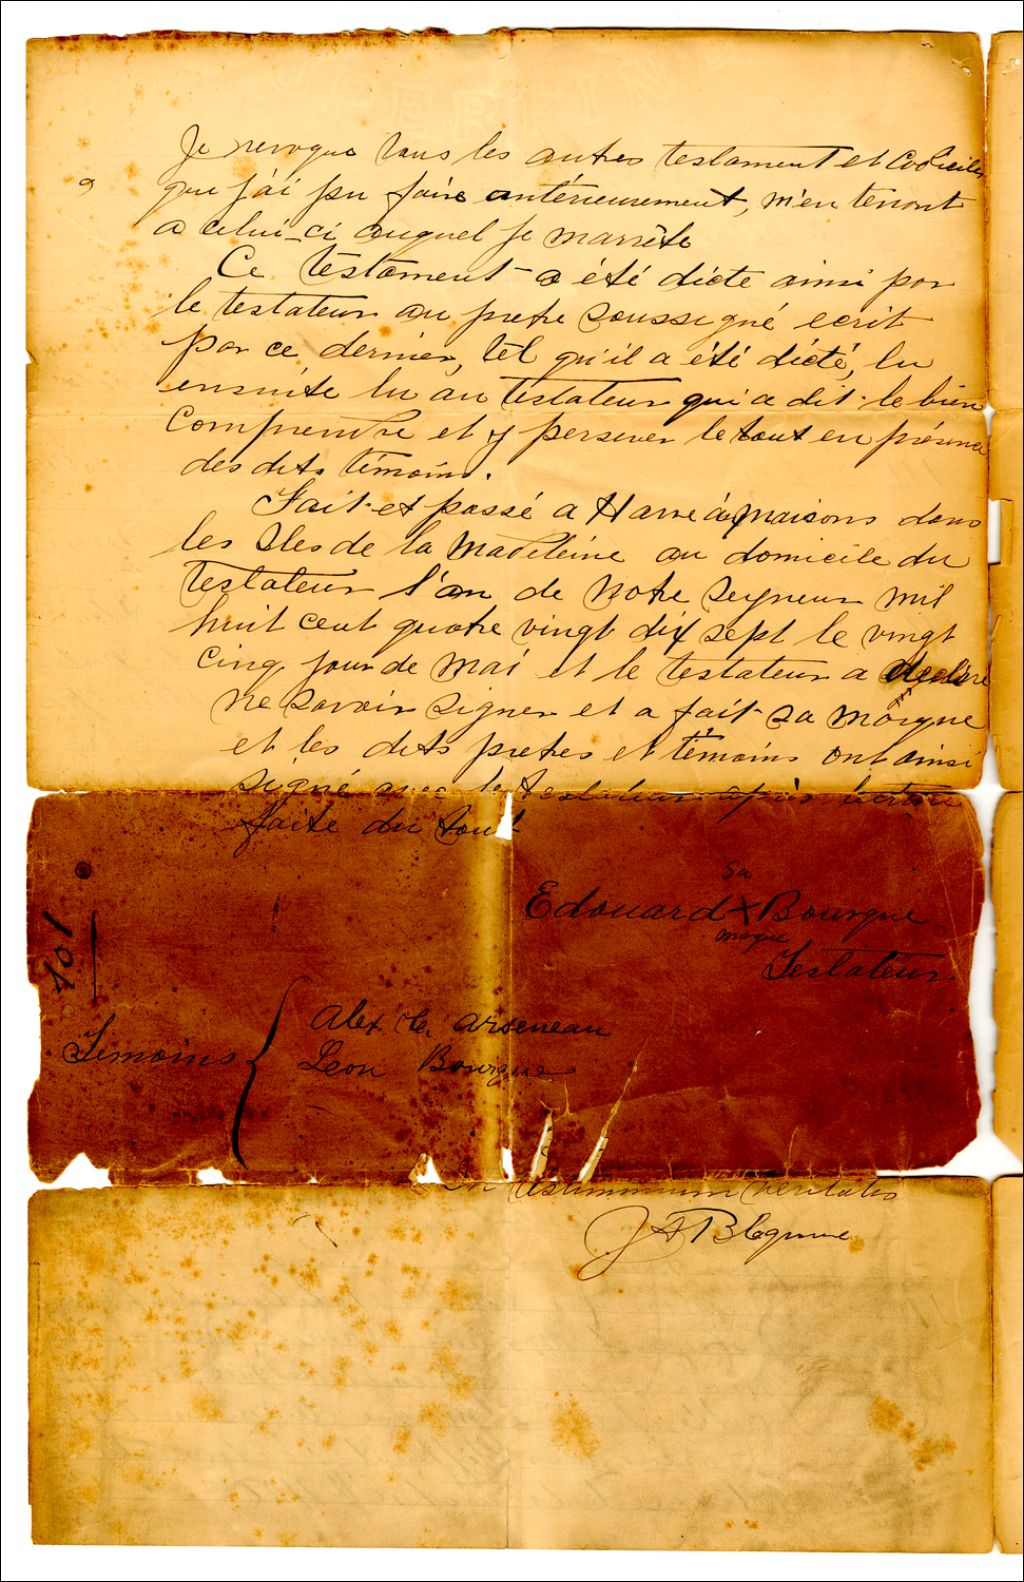 Je revoque tous les autres testament et Codicile
que j'ai pu faire antérieusement, m'en tenont
a celui-ci auquel je marrête
Ce testament a été dicte ainsi par
le testateur au pretre soussigné ecrit
par ce dernier, tel qu'il a été dicté, lu
ensuite lu au testateur qui a dit le bien
comprendre et y perserver le tout en présence
des dits témoins.
Fait et passé a Havre aux maisons dans
les Iles de la Madeleine au domicile du
testateur l'an de Notre Seigneur mil
huit cent quatre vingt dix sept le vingt
cinq jour de Mai et le testateur a declaré
ne savoir signer et a fait sa marque
et les dits pretres et témoins ont ainsi
signé avec le testateur après lecture
faite du tout
sa
Edouard X Bourque
marque
Testateur
101
Temoins
Alex Arseneau
Leon Bourque
In testimonium veritatis
J